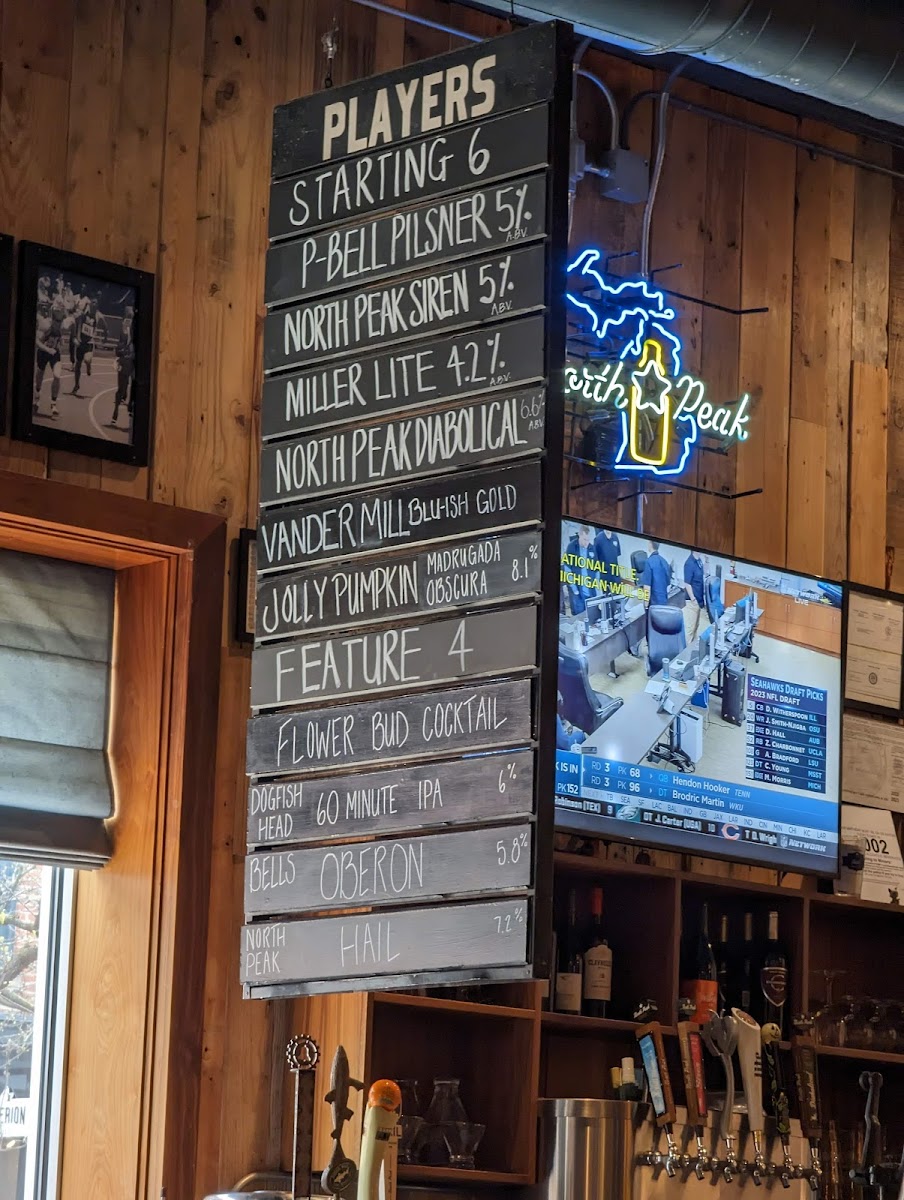 PLAYERS
STARTING 6
P-BELL PILSNER 5% A.B.V.
NORTH PEAK SIREN 5% A.B.V.
MILLER LITE 4.2% A.B.V.
NORTH PEAK DIABOLICAL 6.6% A.B.V.
VANDER MILL BLU-ISH GOLD
JOLLY PUMPKIN MADRUGADA OBSCURA 8.1%
FEATURE 4
FLOWER BUD COCKTAIL
DOGFISH HEAD 60 MINUTE IPA 6%
BELLS OBERON 5.8%
NORTH PEAK HAIL 7.2%
orth Peak
ATIONAL TITLE
ICHIGAN WILL BE
LIVE
SEAHAWKS DRAFT PICKS
2023 NFL DRAFT
CB D. WITHERSPOON ILL
WR J. SMITH-NJIGBA OSU
D. HALL AUB
RB Z. CHARBONNET UCLA
G A. BRADFORD LSU
DT C. YOUNG MSST
M. MORRIS MICH
K IS IN
RD 3 PK 68 QB Hendon Hooker TENN
PK 152
RD 3 PK 96 DT Brodric Martin WKU
Robinson (TEX) 9 DT J. Carter (UGA) 10 T D. Wright
NFL NETWORK
002
ERION